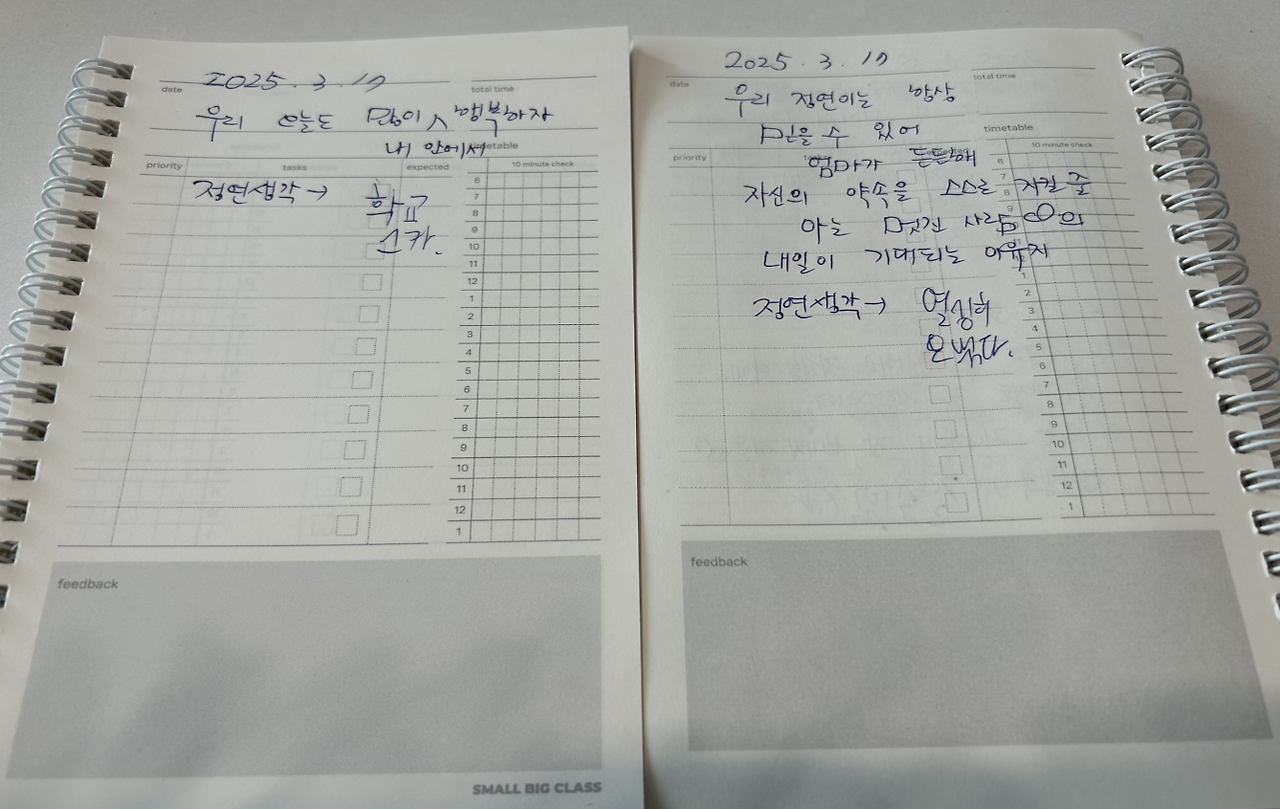 2025. 3. 17
date
total time
우리 오늘도 많이 행복하자
내 안에서
timetable
priority
tasks
expected
10 minute check
정연생각 → 학교
스카.
6
7
8
9
10
11
12
1
2
3
4
5
6
7
8
9
10
11
12
1
feedback
SMALL BIG CLASS
2025. 3. 17
date
total time
우리 정연이는 항상
믿을 수 있어
timetable
priority
10 minute check
엄마가 든든해
자신의 약속을 스스로 지킬 줄
아는 멋진 사람
내일이 기대되는
정연생각 → 열심히
6
7
8
9
1
2
3
4
5
6
7
8
9
10
11
12
1
feedback